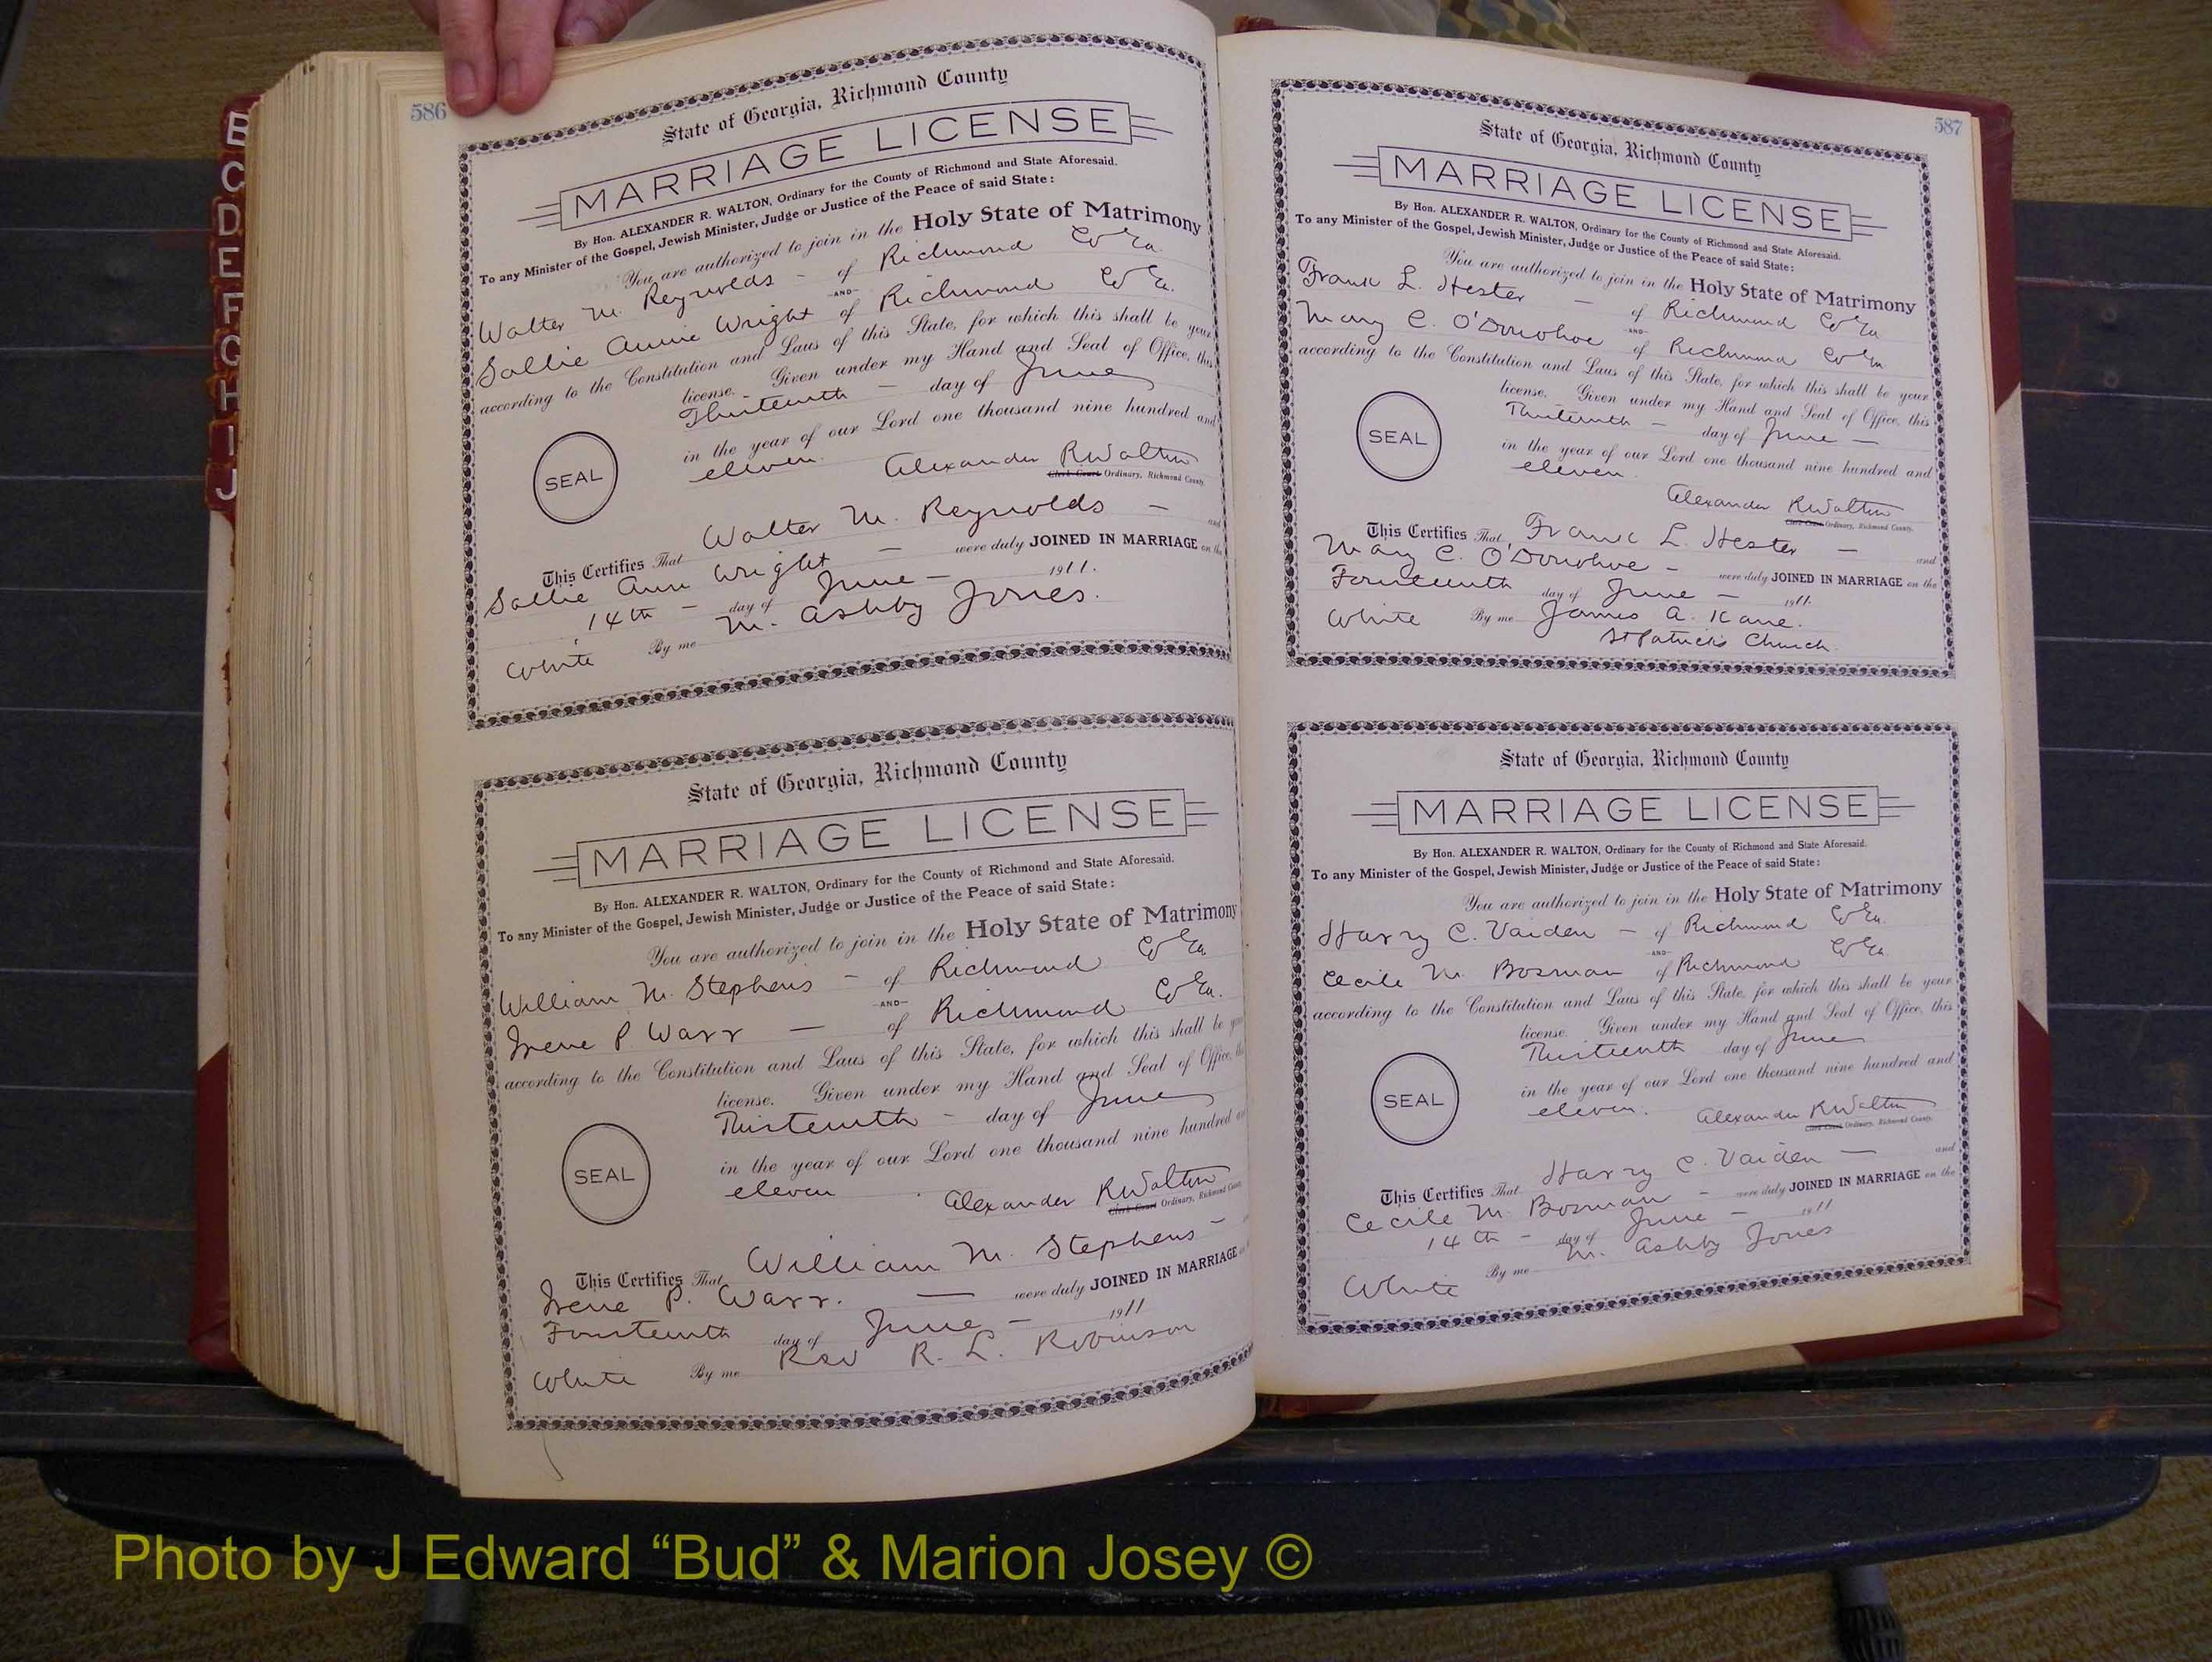 B
C
D
E
F
G
H
I
J
586
State of Georgia, Richmond County
MARRIAGE LICENSE
By Hon. ALEXANDER R. WALTON, Ordinary for the County of Richmond and State Aforesaid.
To any Minister of the Gospel, Jewish Minister, Judge or Justice of the Peace of said State:
You are authorized to join in the Holy State of Matrimony
Walter M. Reynolds - of Richmond Co Ga.
-AND-
Sallie Annie Wright of Richmond Co Ga.
according to the Constitution and Laws of this State, for which this shall be your
license. Given under my Hand and Seal of Office, this
Thirteenth - day of June
in the year of our Lord one thousand nine hundred and
eleven.
SEAL
Alexander R Walton
Clerk Court Ordinary, Richmond County.
This Certifies That Walter M. Reynolds - and
Sallie Ann Wright - were duly JOINED IN MARRIAGE on the
14th - day of June - 1911.
White By me M. Ashby Jones.
State of Georgia, Richmond County
MARRIAGE LICENSE
By Hon. ALEXANDER R. WALTON, Ordinary for the County of Richmond and State Aforesaid.
To any Minister of the Gospel, Jewish Minister, Judge or Justice of the Peace of said State:
You are authorized to join in the Holy State of Matrimony
William M. Stephens - of Richmond Co Ga
-AND-
Irene P Warr - of Richmond Co Ga.
according to the Constitution and Laws of this State, for which this shall be you
license. Given under my Hand and Seal of Office, th
Thirteenth - day of June
in the year of our Lord one thousand nine hundred an
eleven
SEAL
Alexander R Walton
Clerk Court Ordinary, Richmond County.
This Certifies That William M. Stephens -
Irene P. Warr. - were duly JOINED IN MARRIAGE
Fourteenth day of June - 1911
White By me Rev R. L. Robinson
587
State of Georgia, Richmond County
MARRIAGE LICENSE
By Hon. ALEXANDER R. WALTON, Ordinary for the County of Richmond and State Aforesaid.
To any Minister of the Gospel, Jewish Minister, Judge or Justice of the Peace of said State:
You are authorized to join in the Holy State of Matrimony
Frank L. Hester - of Richmond Co Ga
-AND-
Mary C. O'Donohoe of Richmond Co Ga
according to the Constitution and Laws of this State, for which this shall be your
license. Given under my Hand and Seal of Office, this
Thirteenth - day of June -
in the year of our Lord one thousand nine hundred and
eleven.
SEAL
Alexander R Walton
Clerk Court Ordinary, Richmond County.
This Certifies That Frank L. Hester - and
Mary C. O'Donohoe - were duly JOINED IN MARRIAGE on the
Fourteenth day of June - 1911.
White By me James A. Kane.
St Patricks Church.
State of Georgia, Richmond County
MARRIAGE LICENSE
By Hon. ALEXANDER R. WALTON, Ordinary for the County of Richmond and State Aforesaid.
To any Minister of the Gospel, Jewish Minister, Judge or Justice of the Peace of said State:
You are authorized to join in the Holy State of Matrimony
Harry C. Vaiden - of Richmond Co Ga.
-AND-
Cecile M. Bosman of Richmond Co Ga.
according to the Constitution and Laws of this State, for which this shall be your
license. Given under my Hand and Seal of Office, this
Thirteenth day of June
in the year of our Lord one thousand nine hundred and
eleven.
SEAL
Alexander R Walton
Clerk Court Ordinary, Richmond County.
This Certifies That Harry C. Vaiden - and
Cecile M. Bosman - were duly JOINED IN MARRIAGE on the
14th - day of June - 1911
White By me M. Ashby Jones
Photo by J Edward “Bud” & Marion Josey ©